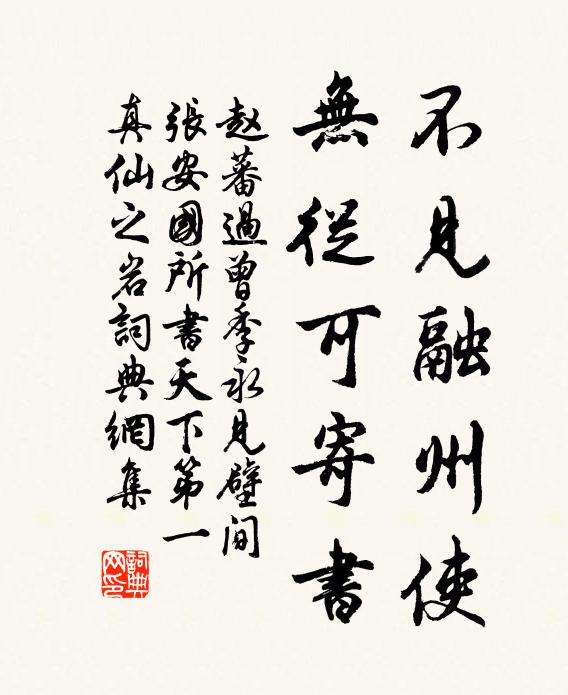 不見融州使
無從可寄書
赵蕃過曾季永見壁间
張安國所書天下第一
真仙之岩詞典網集
詞典網印